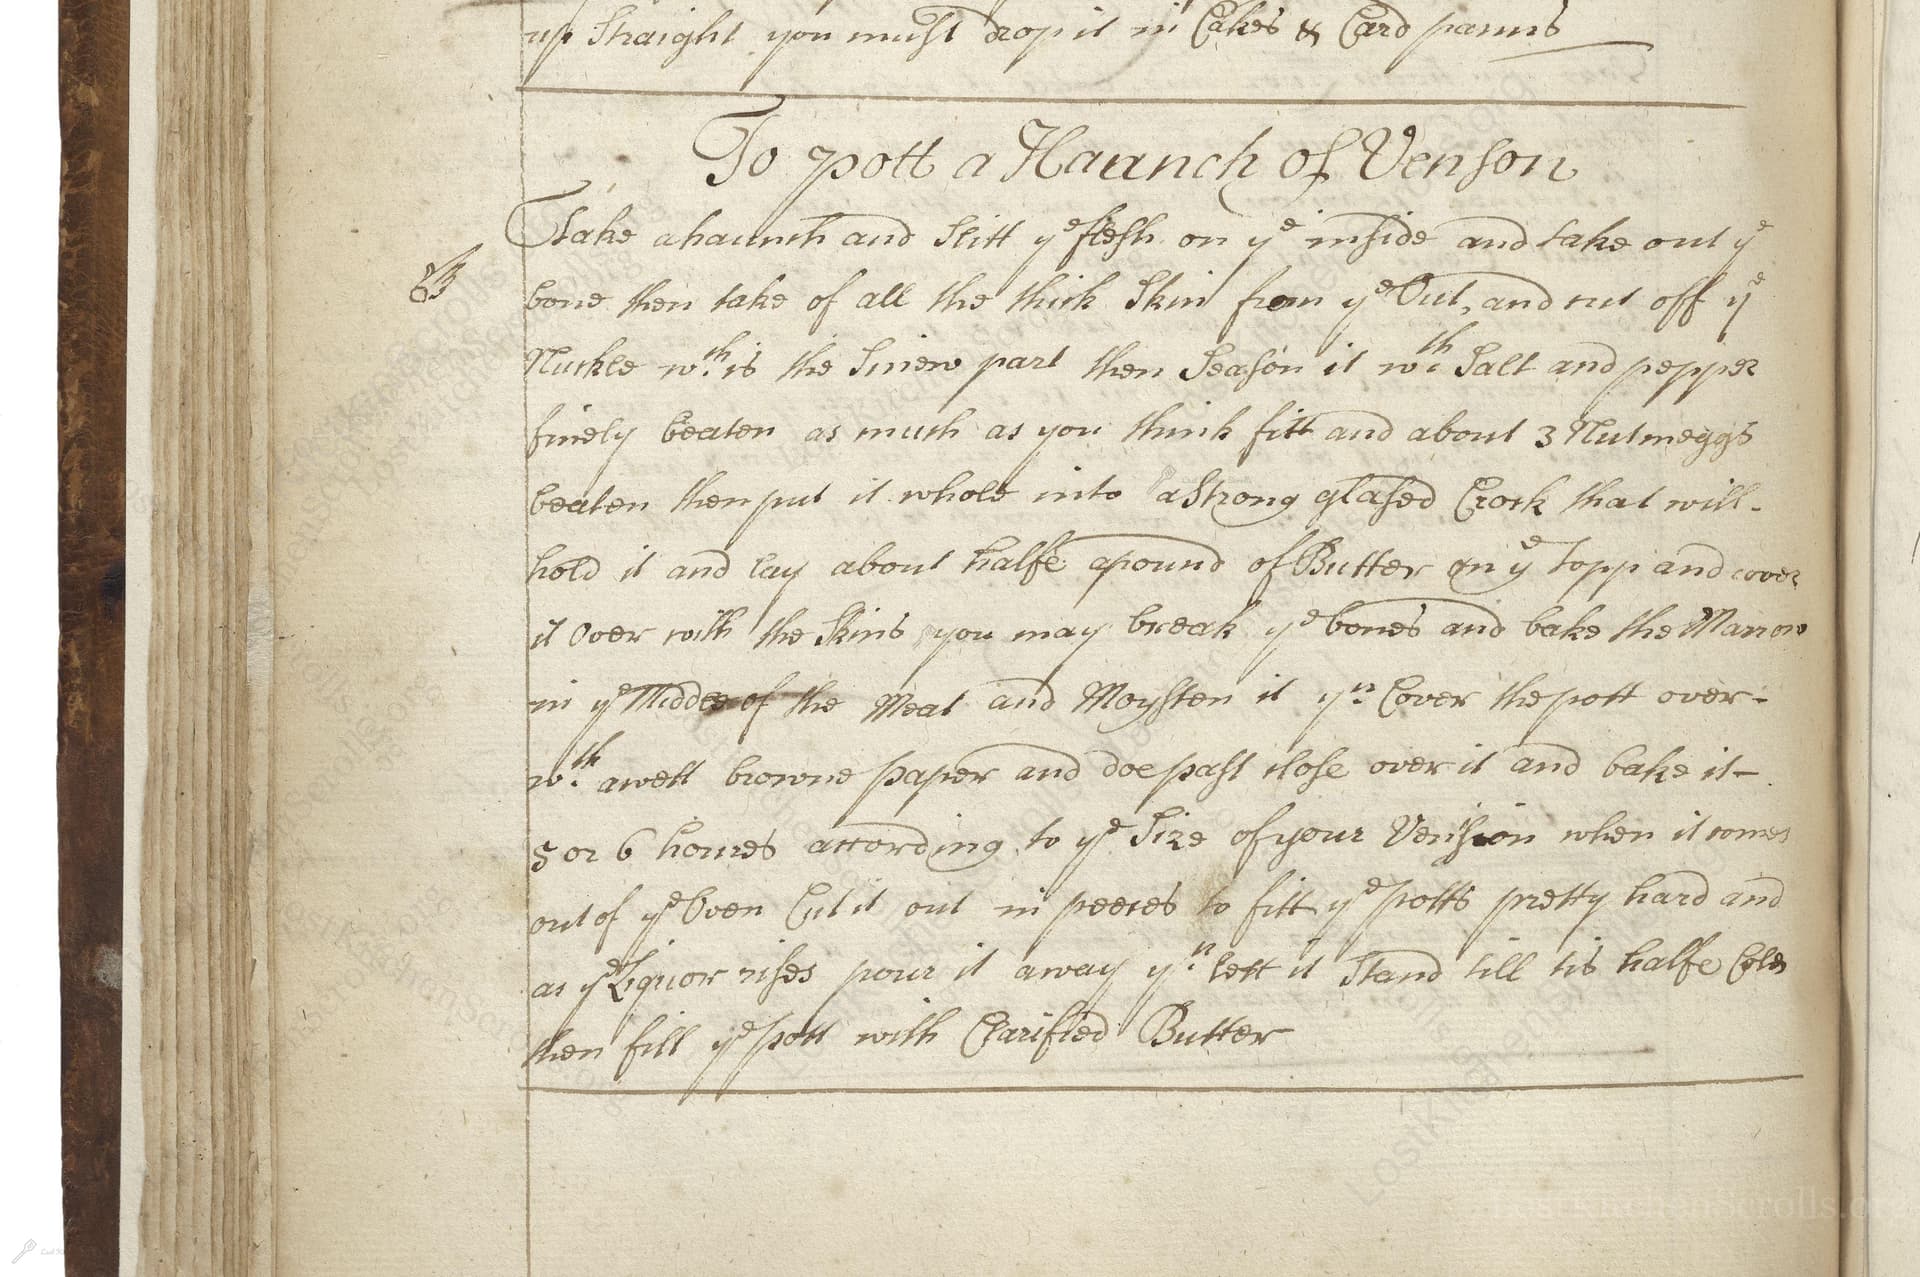 up Straight you must drop it in Cakes & Card panns
To pott a Haunch of Venson
Take a haunch and Slitt ye flesh on ye inside and take out ye
bone then take of all the thick Skin from ye Out, and cut off ye
Nuckle wch is the Sinew part then Season it wth Salt and pepper
finely beaten as much as you think fitt and about 3 Nutmeggs
beaten then put it whole into a Strong glased Crock that will
hold it and lay about halfe a pound of Butter on ye topp and cover
it Over with the Skins you may break ye bones and bake the Marrow
in ye Middle of the Meat and Moysten it yn Cover the pott over
wth a wett browne paper and doe past close over it and bake it
5 or 6 houres according to ye Size of your Vension when it comes
out of ye Oven Cut it out in peeces to fitt ye potts pretty hard and
as ye Liquor rises pour it away yn lett it Stand till tis halfe Cold
then fill ye pott with Clarified Butter
LostKitchenScrolls.org